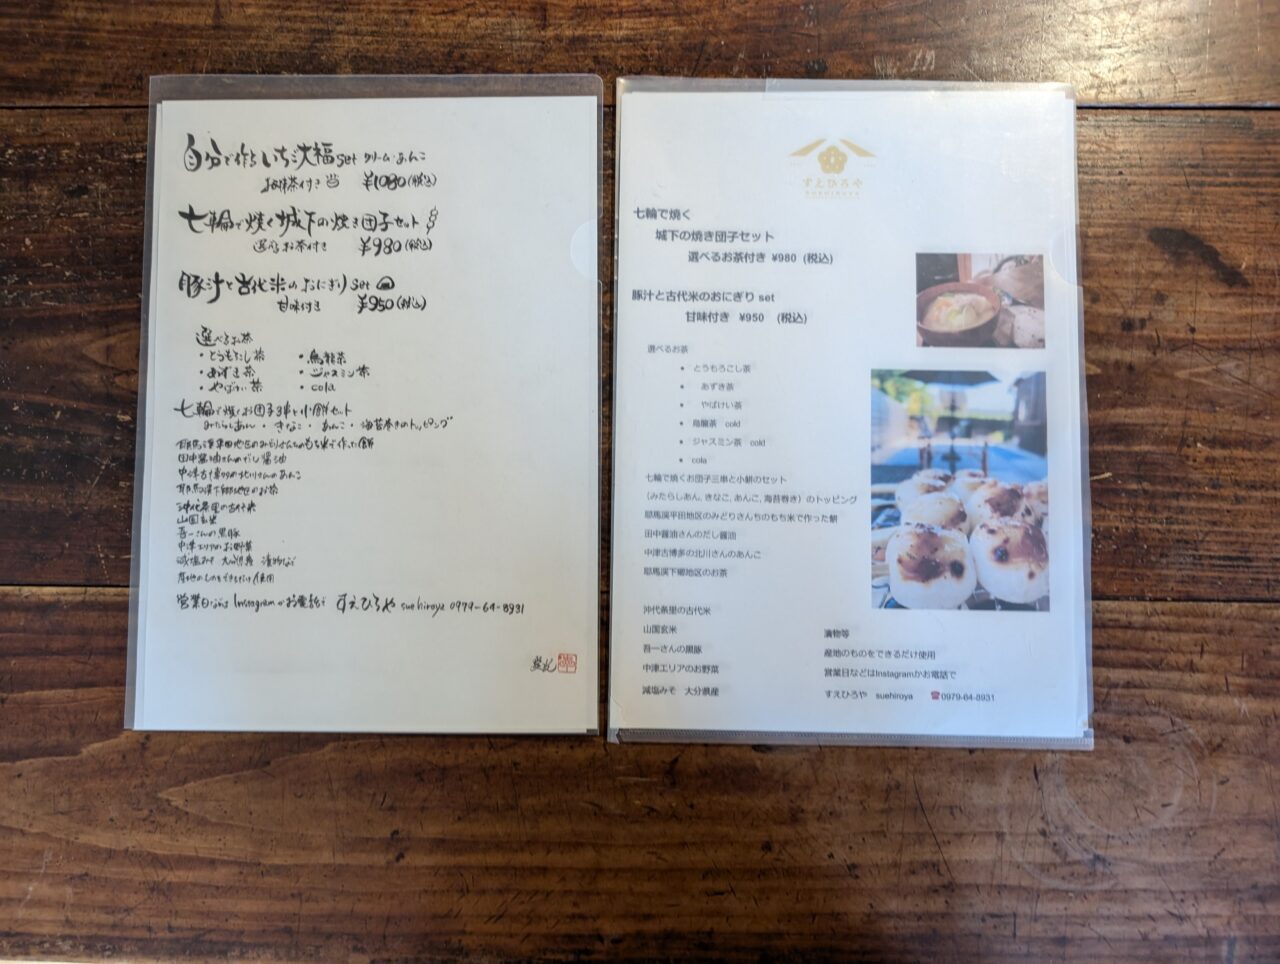 自分で作るいちご大福set クリーム・あんこ
お抹茶付き ¥1080(税込)
七輪で焼く城下の焼き団子セット
選べるお茶付き ¥980(税込)
豚汁と古代米のおにぎりset
甘味付き ¥950(税込)
選べるお茶
・とうもろこし茶 ・烏龍茶
・あずき茶 ・ジャスミン茶
・やばけい茶 ・cola
七輪で焼くお団子3串と小餅セット
みたらしあん・きなこ・あんこ・海苔巻きのトッピング
耶馬渓平田地区のみどりさんちのもち米で作った餅
田中醤油さんのだし醤油
中津古博多の北川さんのあんこ
耶馬渓下郷地区のお茶
沖代条里の古代米
山国玄米
吾一さんの黒豚
中津エリアのお野菜
減塩みそ 大分県産 漬物など
産地のものをできるだけ使用
営業日などは Instagramかお電話で すえひろや suehiroya 0979-64-8931
すえひろや
SUEHIROYA
七輪で焼く
城下の焼き団子セット
選べるお茶付き ¥980 (税込)
豚汁と古代米のおにぎり set
甘味付き ¥950 (税込)
選べるお茶
● とうもろこし茶
● あずき茶
● やばけい茶
● 烏龍茶 cold
● ジャスミン茶 cold
● cola
七輪で焼くお団子三串と小餅のセット
(みたらしあん, きなこ, あんこ, 海苔巻き) のトッピング
耶馬渓平田地区のみどりさんちのもち米で作った餅
田中醤油さんのだし醤油
中津古博多の北川さんのあんこ
耶馬渓下郷地区のお茶
沖代条里の古代米
山国玄米
吾一さんの黒豚
中津エリアのお野菜
減塩みそ 大分県産
漬物等
産地のものをできるだけ使用
営業日などはInstagramかお電話で
すえひろや suehiroya ☎0979-64-8931